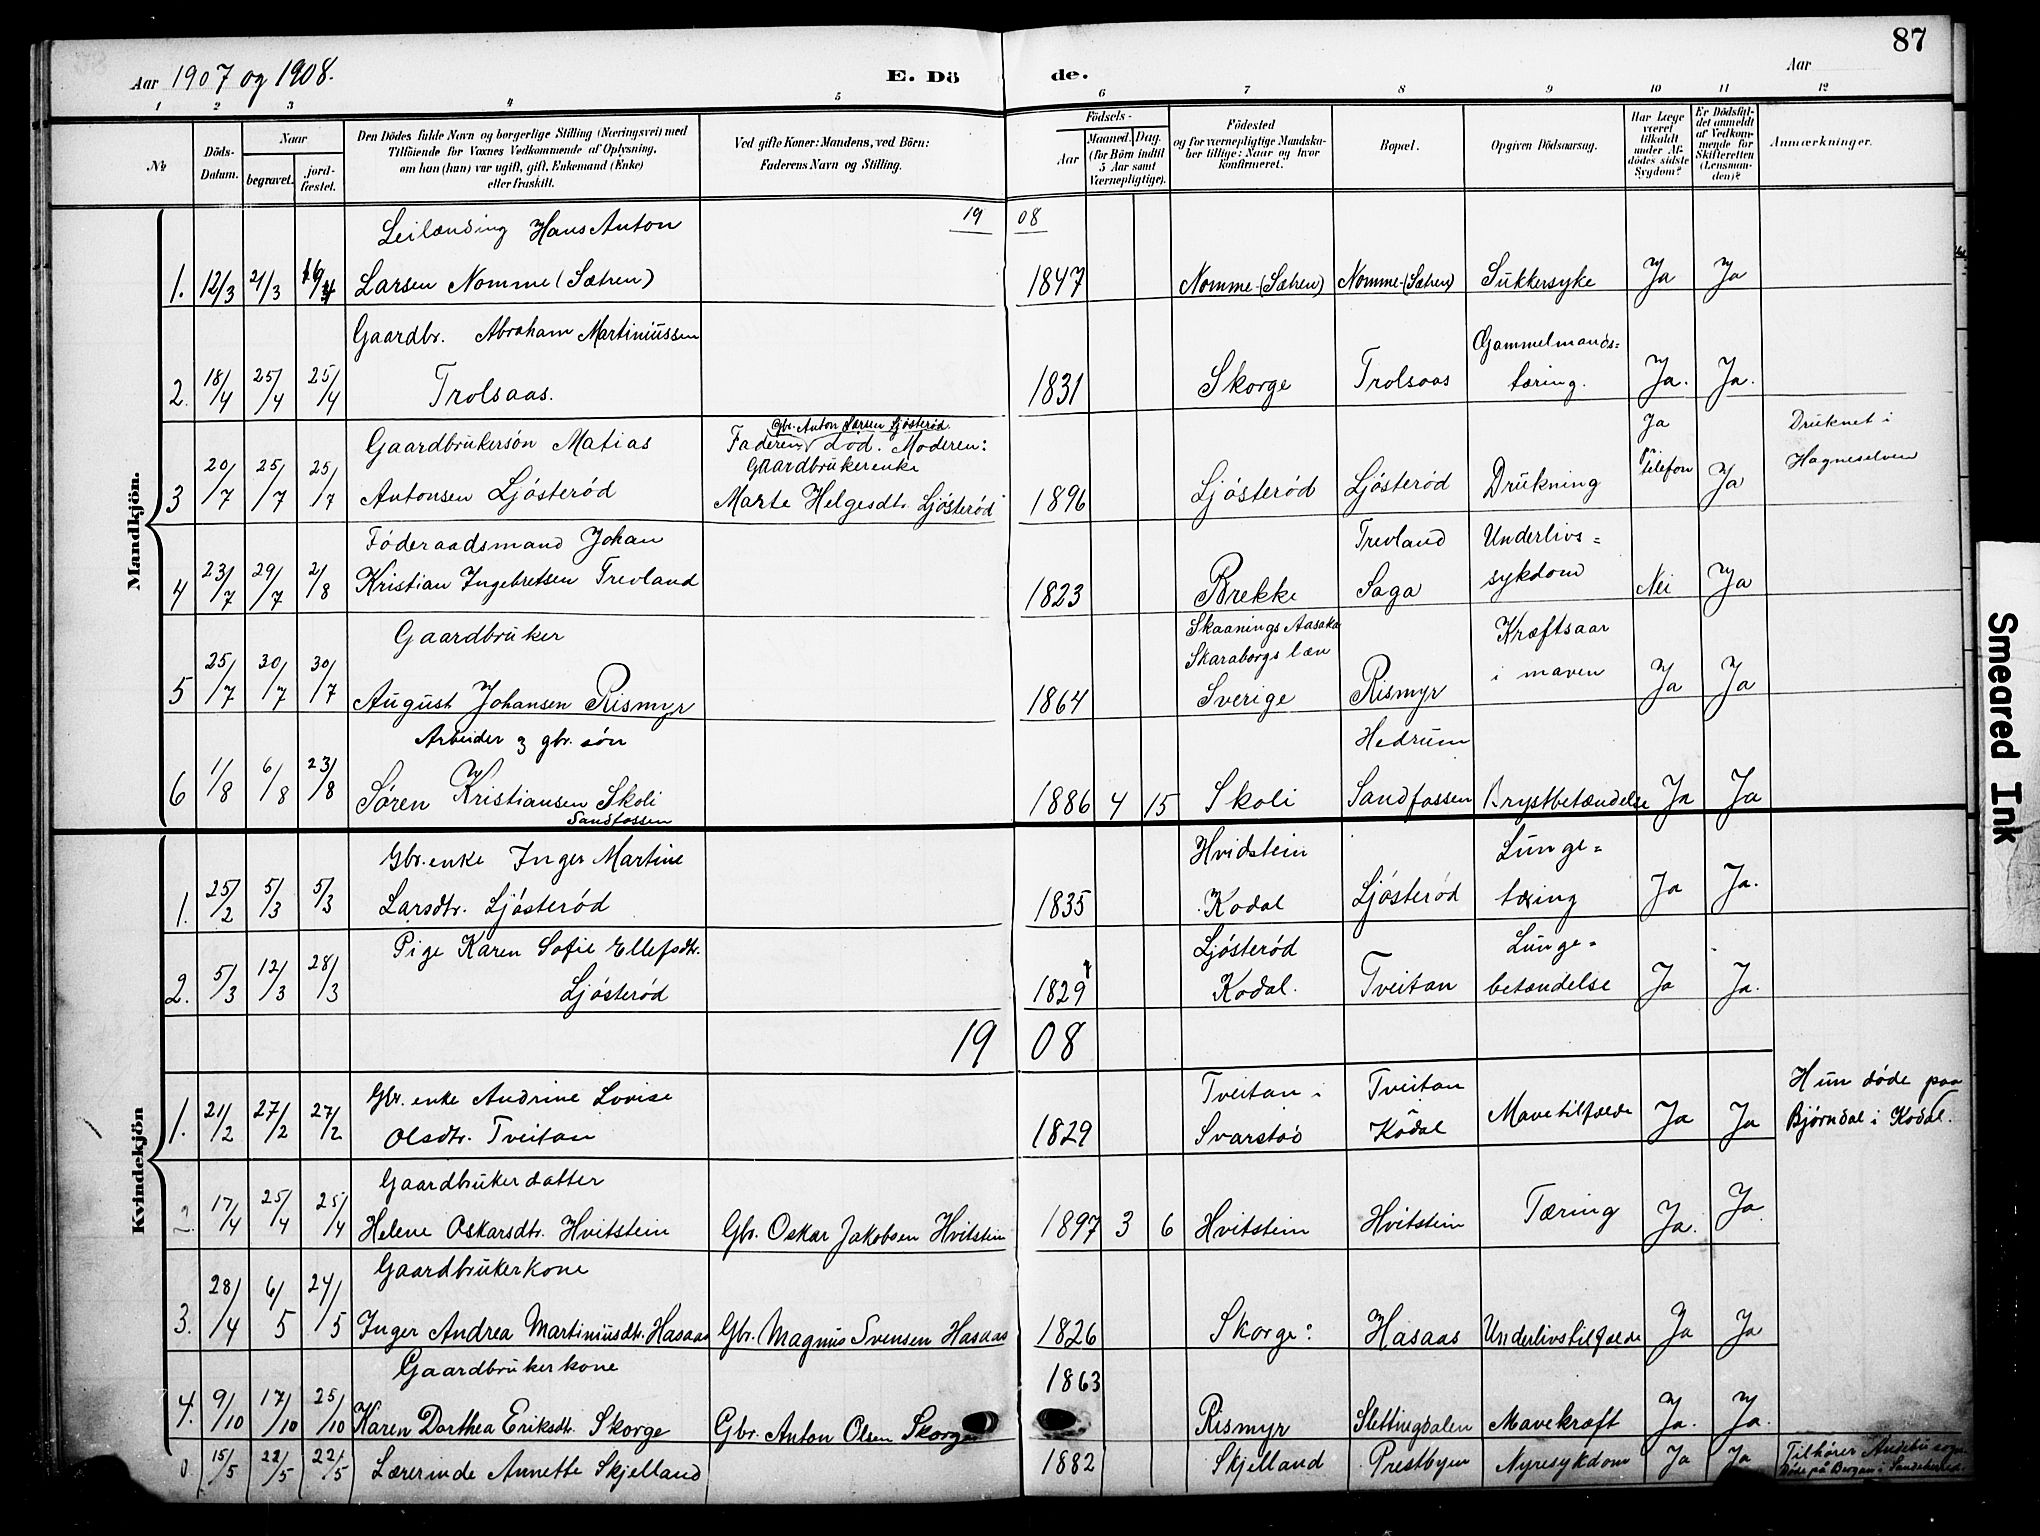 87
Aar 1907 og 1908.
E. Dö de.
Aar
1 2 3 4 5 6 7 8 9 10 11 12
No.
Döds-Datum.
Naar
begravet.
jord-fæstet.
Den Dödes fulde Navn og borgerlige Stilling (Næringsvei) med
Tilföiende for Voxnes Vedkommende af Oplysning,
om han (hun) var ugift, gift, Enkemand (Enke)
eller fraskilt.
Ved gifte Koner: Mandens, ved Börn:
Faderens Navn og Stilling.
Födsels-
Aar
Maaned. Dag.
(for Börn indtil
5 Aar samt
Værnepligtige).
Födested
og for værnepligtige Mandska-
ber tillige: Naar og hvor
konfirmeret.
Bopæl.
Opgiven Dödsaarsag.
Har Læge
været
tilkaldt
under Af-
dödes sidste
Sygdom?
Er Dödsfal-
det anmeldt
af Vedkom-
mende for
Skifteretten
(Lensman-
den)?
Anmærkninger.
Mandkjön.
19 08
Leilænding Hans Anton
1. 12/3 21/3 Larsen Nomme (Sætren) 1847 Nomme (Sætren) Nomme (Sætren) Sukkersyke Ja Ja
Gaardbr. Abraham Martiniussen Gammelmands=
2. 18/4 25/4 25/4 Trolsaas. 1831 Skorge Trolsaas tæring. Ja. Ja.
Gbr. Anton Larsen Ljósteród
Gaardbrukersón Matias Faderen dód. Moderen: Ja Druknet i
Gaardbrukerenke pr. telefon Hagneselven
3 20/7 25/7 25/7 Antonsen Ljósteród Marte Helgesdtr. Ljósteród 1896 Ljósteród Ljósteród Drukning Ja
Fóderaadsmand Johan Trevland Underlivs=
4 23/7 29/7 2/8 Kristian Ingebretsen Trevland 1823 Brekke Saga sykdom Nei Ja
Gaardbruker Skaanings Aasaka Kræftsaar
Skaraborgs læn i maven
5 25/7 30/7 30/7 August Johansen Rismyr 1864 Sverige Rismyr Ja Ja
Arbeider og gbr. són Hedrum
6 1/8 6/8 23/8 Sóren Kristiansen Skoli 1886 4 15 Skoli Sandfossen Brystbetændelse Ja Ja
Sandfossen
Kvindekjön
Gbr. enke Inger Martine Hvidstein Lunge=
1. 25/2 5/3 5/3 Larsdtr. Ljósteród 1835 Kodal Ljósteród tæring Ja Ja.
Pige Karen Sofie Ellefsdtr. Ljósteród Lunge=
2. 5/3 12/3 28/3 Ljósteród 1829 Kodal. Tveitan betændelse Ja Ja.
19 08
Gbr. enke Andrine Lovise Tveitan i Tveitan Hun dóde paa
1. 21/2 27/2 27/2 Olsdtr. Tveitan 1829 Svarstad Kodal Mavetilfælde Ja Ja Bjórndal i Kodal.
Gaardbrukerdatter
2 17/4 25/4 25/4 Helene Oskarsdtr. Hvitstein Gbr. Oskar Jakobsen Hvitstein 1897 3 6 Hvitstein Hvitstein Tæring Ja. Ja
Gaardbrukerkone
3. 28/4 6/5 24/5 Inger Andrea Martiniusdtr. Hasaas Gbr. Magnus Svensen Hasaas 1826 Skorge Hasaas Underlivstilfælde Ja Ja
Gaardbrukerkone 1863
4. 9/10 17/10 25/10 Karen Dorthea Eriksdtr. Skorge Gbr. Anton Olsen Skorge Rismyr Slettingdalen Mavekræft Ja. Ja.
15/5 22/5 22/5 Lærerinde Annette Skjelland 1882 Skjelland Prestbyen Nyresykdom Ja Ja Tilhórer Andebu sogn
Dóde på Bergan i Sandeherred.
Smeared Ink